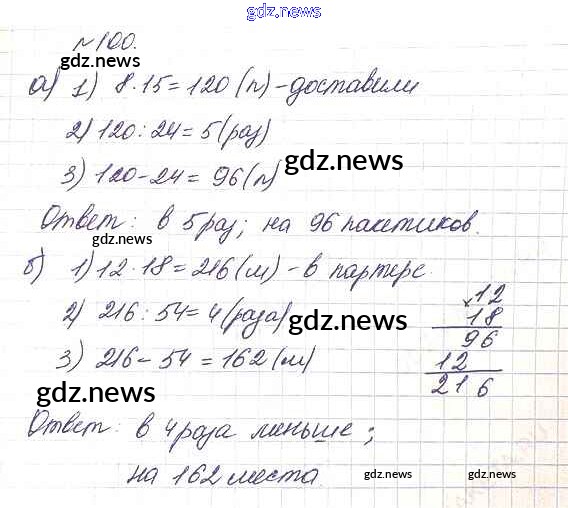 gdz.news
№100.
gdz.news
а) 1) 8·15=120 (п) - доставили
2) 120:24=5 (раз)
3) 120-24=96 (п)
gdz.news
Ответ: в 5 раз; на 96 пакетиков.
gdz.news
б) 1) 12·18=216 (м) - в партере.
2) 216:54=4 (раза)
gdz.news
× 12
18
96
12
216
3) 216-54=162 (м)
gdz.news
Ответ: в 4 раза меньше;
на 162 места.
gdz.news
gdz.news